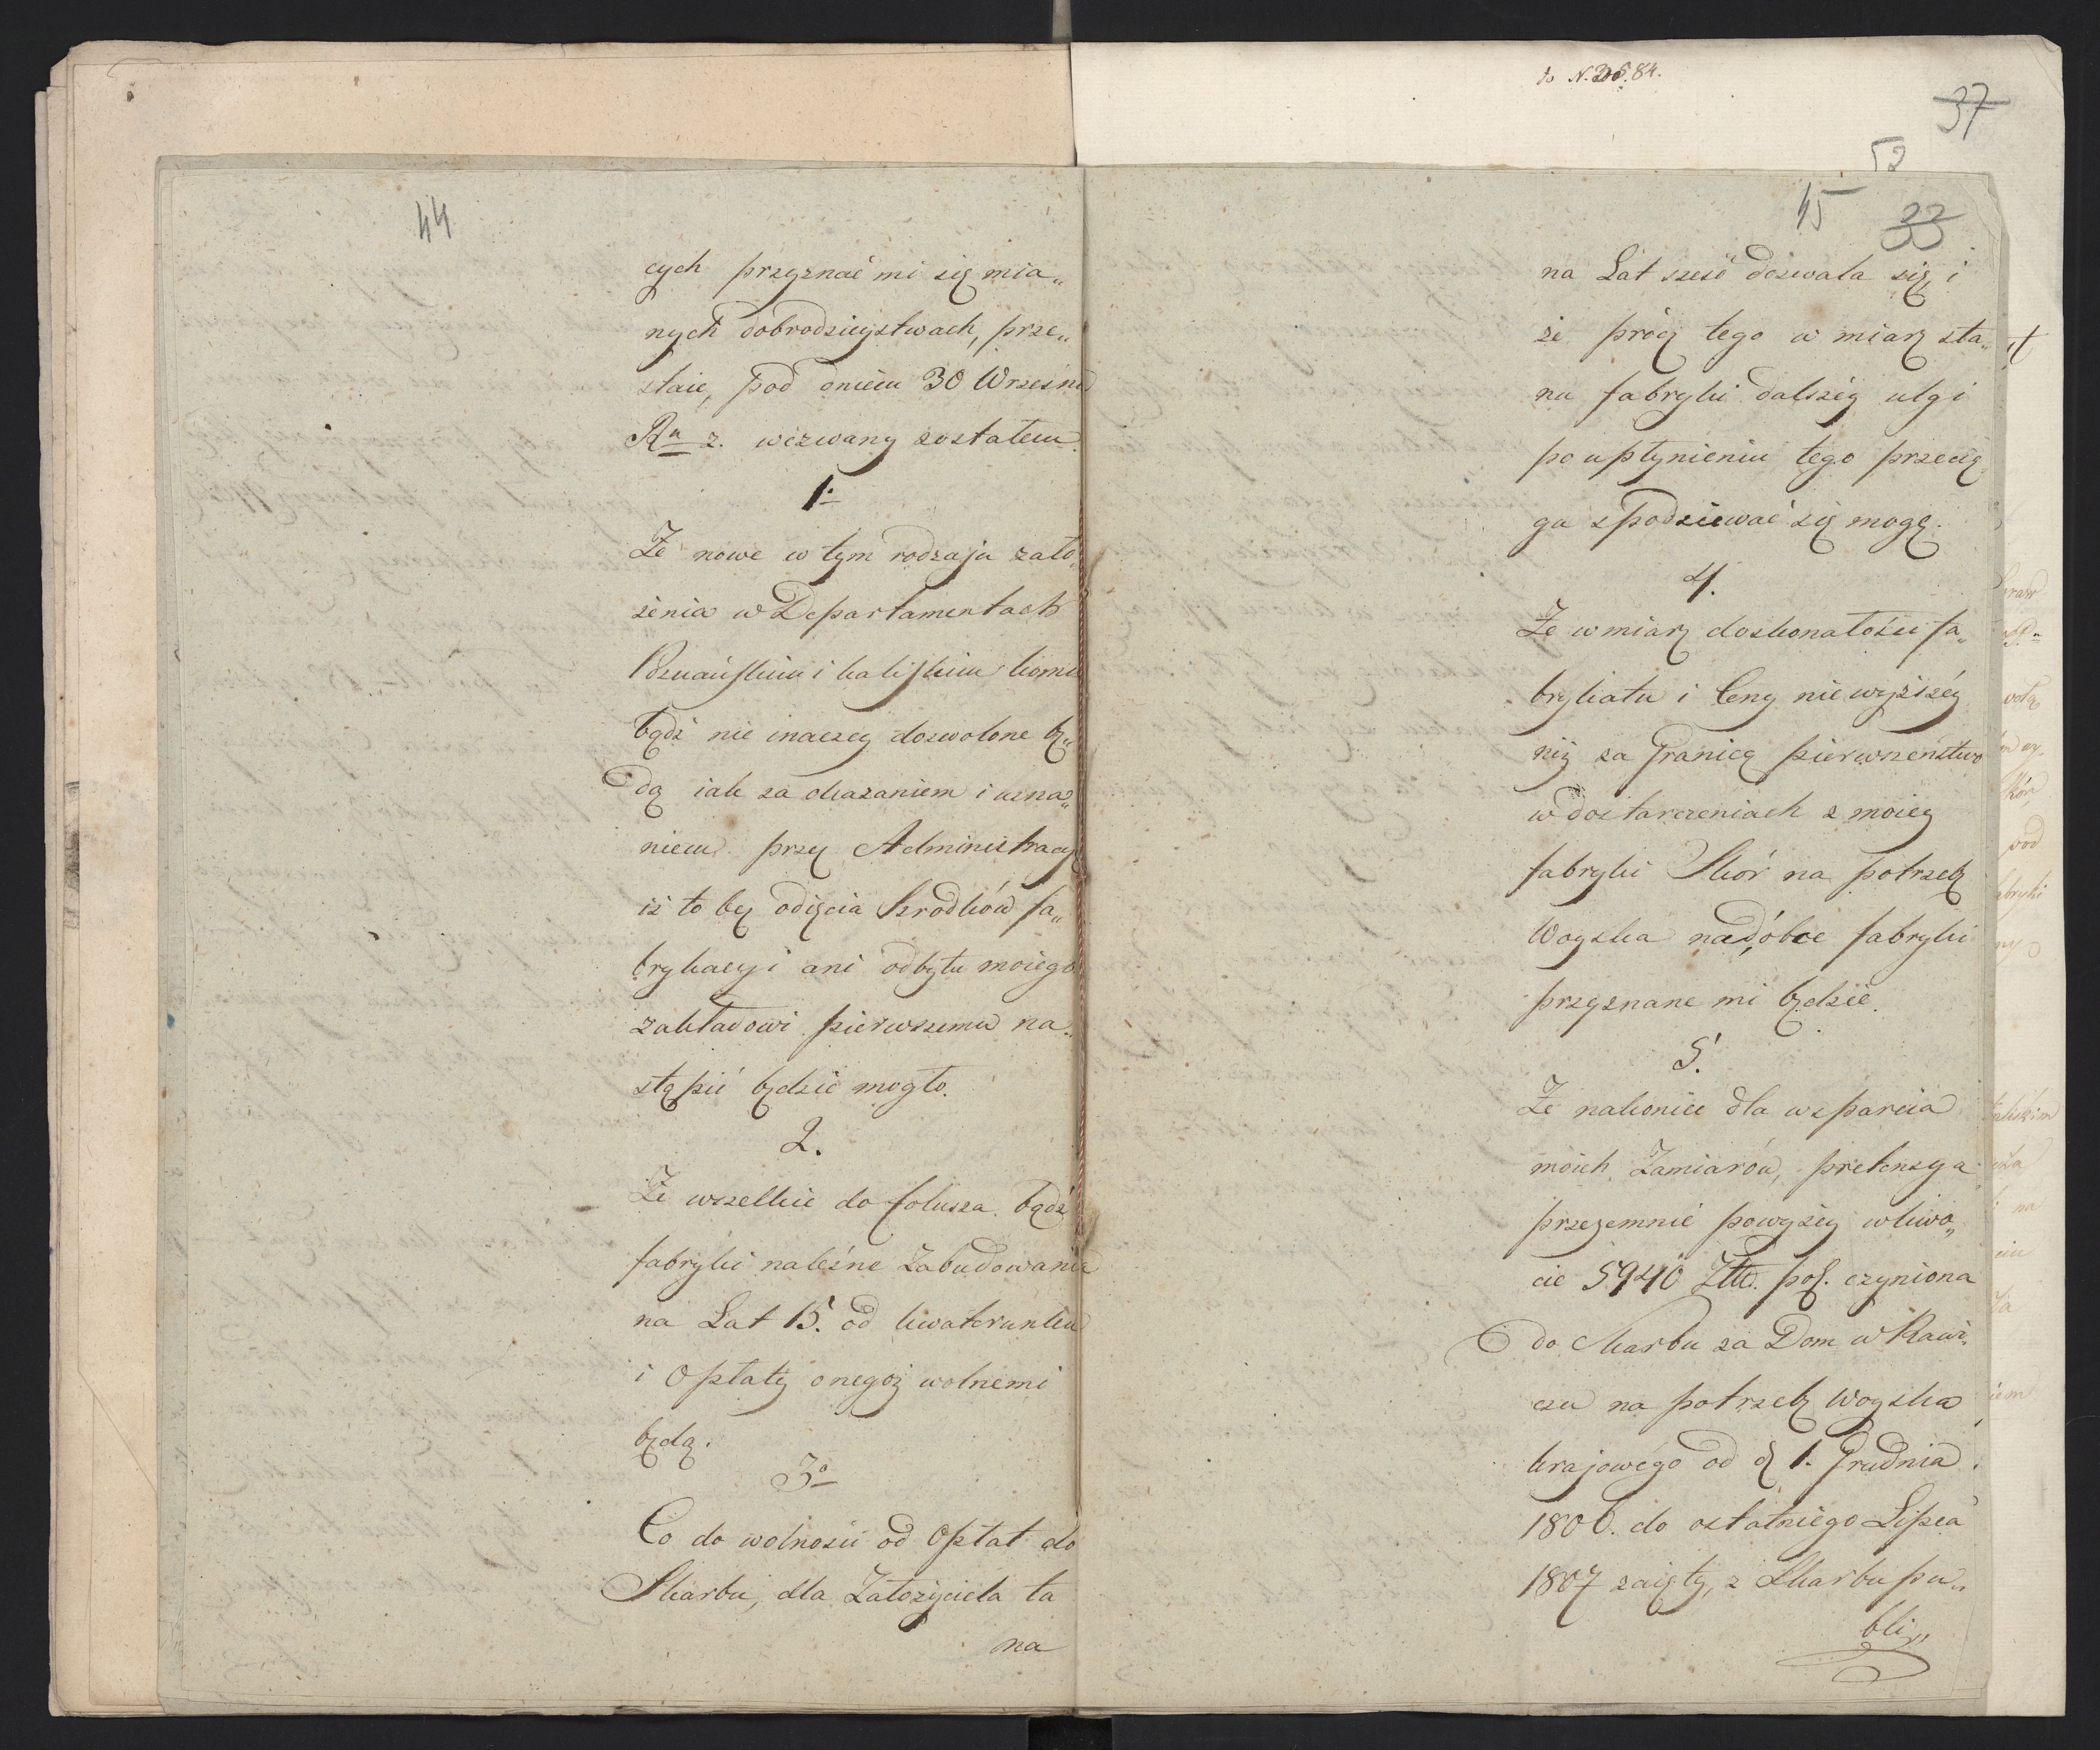 44
cych przyznać mi się mia„
nych dobrodzieystwach, prze„
staie, pod dniem 30 Wrześni
Ru z. wezwany zostałem.
1o
Że nowe w tym rodzaju zało„
żenia w Departamentach
Poznańskim i kaliskim komu
bądź nie inaczey dozwolone bę„
dą iak za okazaniem i uzna„
niem przez Administracyę
iż to bez odięcia szrodków fa„
brykacyi ani odbytu moiego
zakładowi pierwszemu na„
stąpić będzie mogło.
2.
Że wszelkie do folusza bądź
fabryki należne Zabudowania
na Lat 15. od kwaterunku
i Opłaty onegoż wolnemi
będą.
3o
Co do wolności od Opłat do
Skarbu, dla Założyciela ta
na
do N. 84.
37
52
45
33
na Lat sześć dozwala się, i
że prócz tego w miarę sta„
nu fabryki dalszey ulgi
po upłynieniu tego przecią
gu spodziewać się mogę.
4.
Że w miarę doskonałości fa„
brykatu i Ceny nie wyższéy
niż za Granicą pierwszeństwo
w dostarczeniach z moiey
fabryki Skór na potrzebę
Woyska nad óbce fabryki
przyznane mi będzie.
5.
Że nakoniec dla wsparcia
moich Zamiarów, pretensya
przezemnie powyżey w kwo„
cie 5940 Złł. pol. czyniona
do Skarbu za Dom w Rawi„
czu na potrzebę Woyska
kraiowégo od d 1. Grudnia
1806. do ostatniego Lipca
1807 zaięty, z Skarbu pu„
bli„